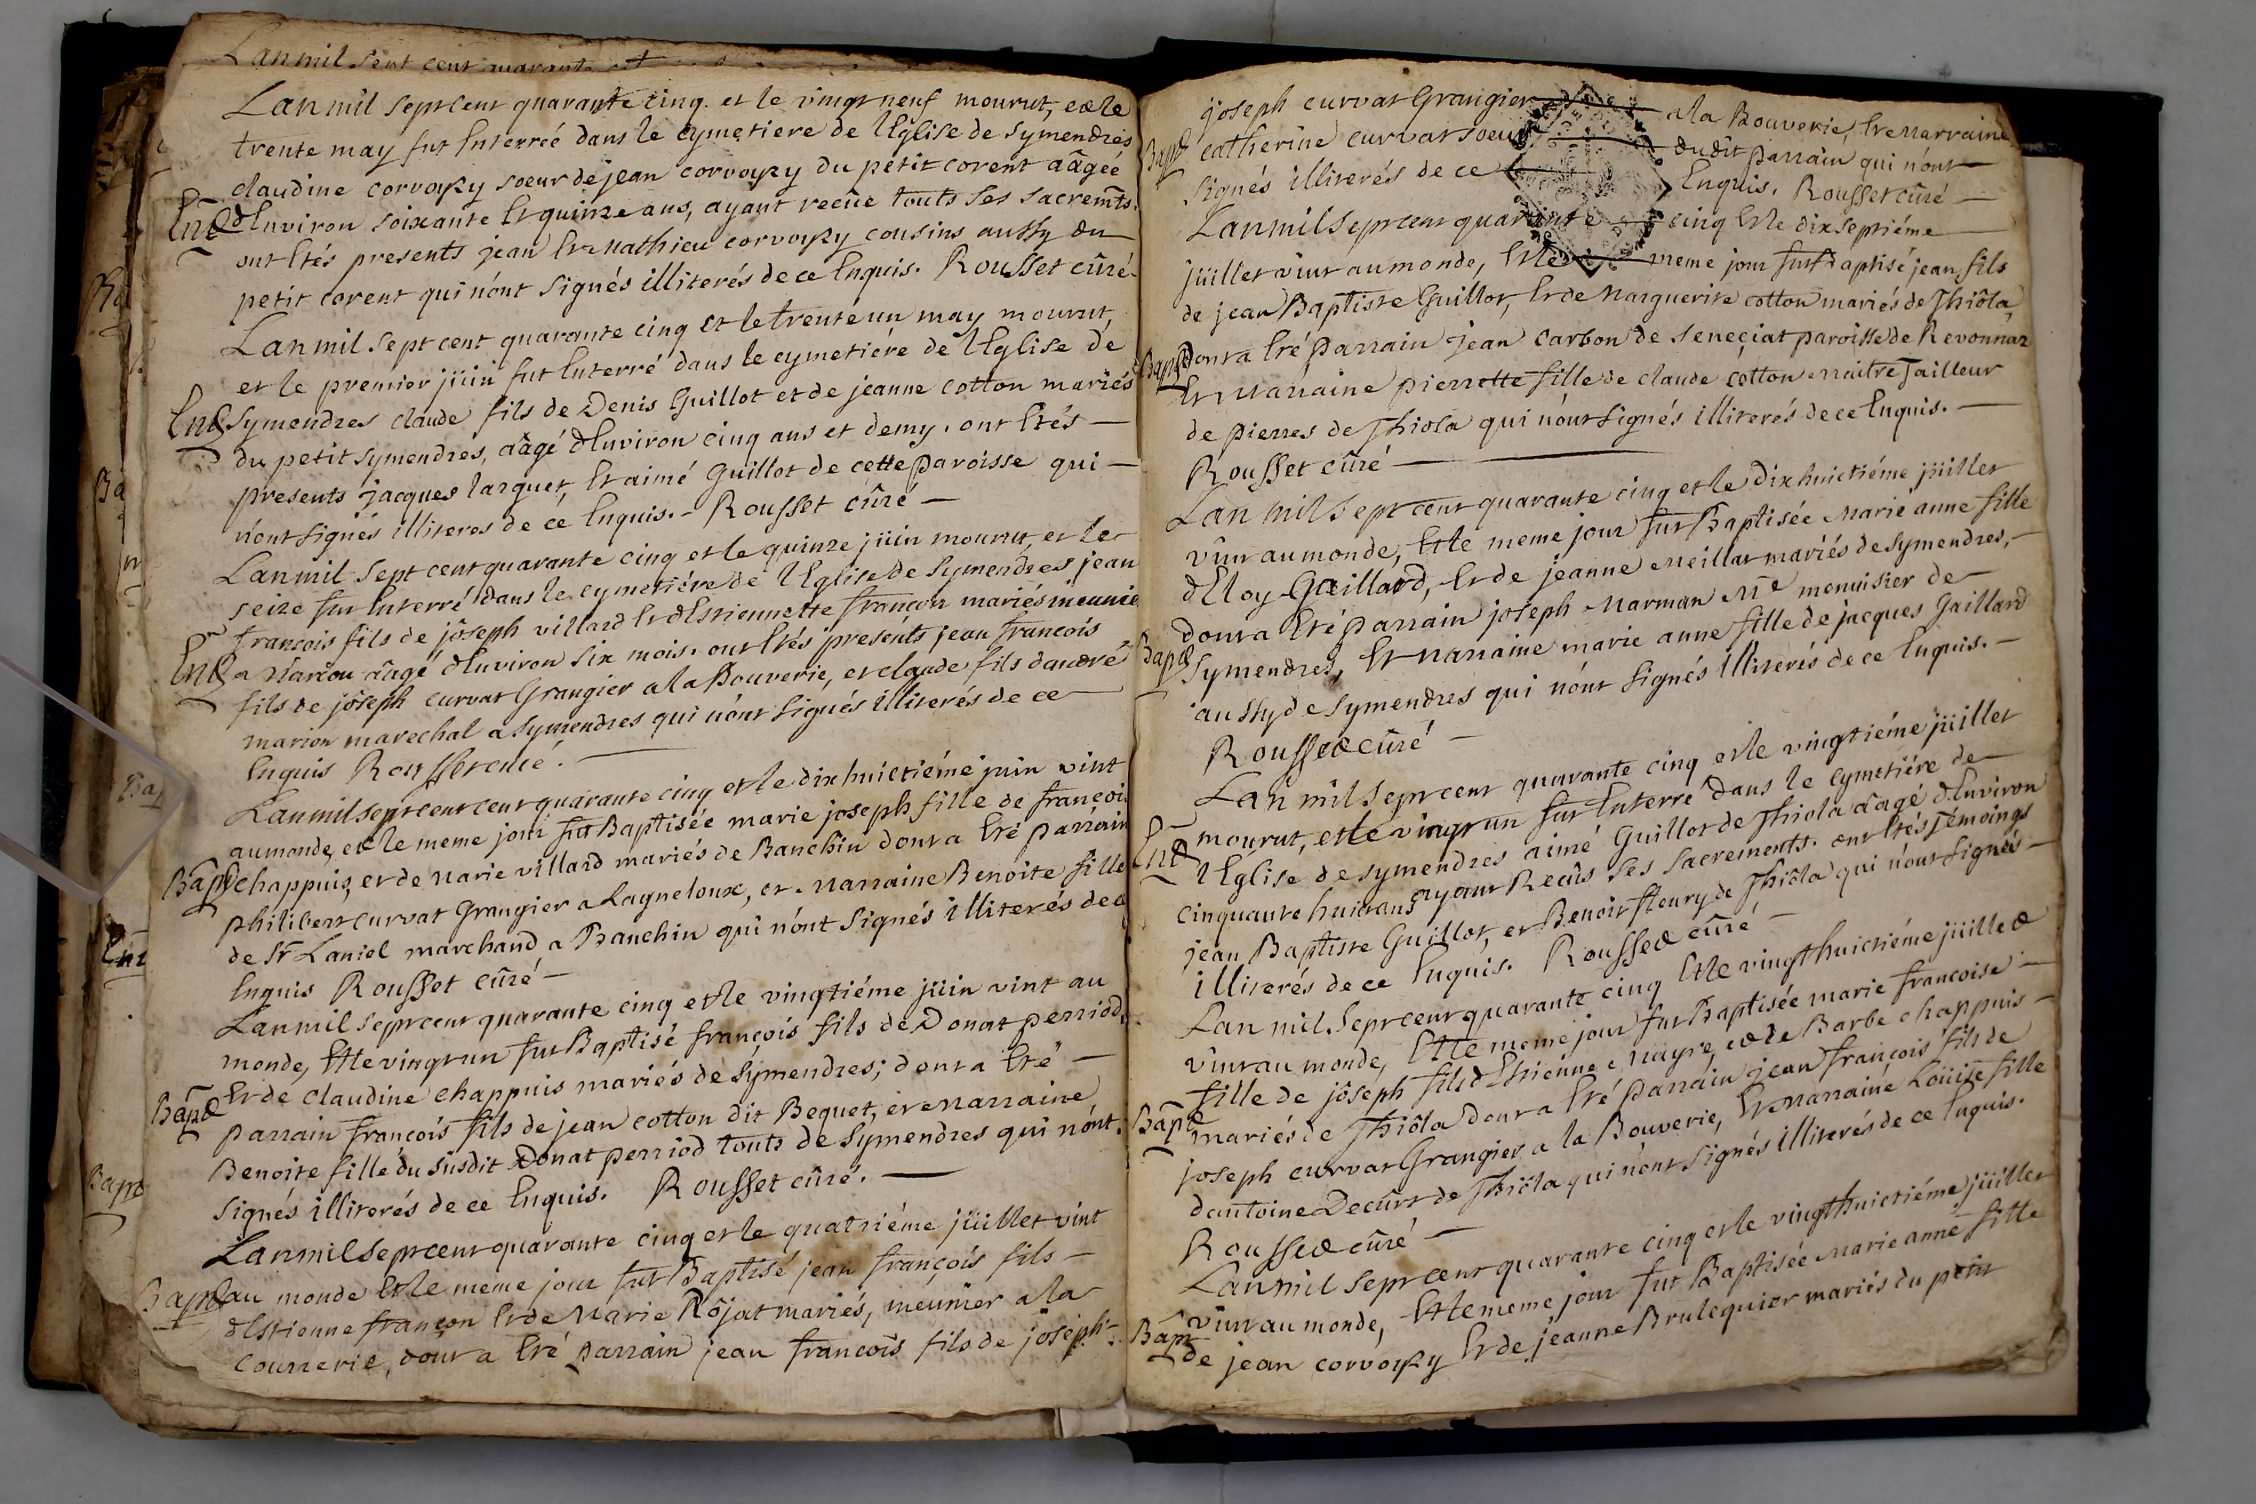 Lan mil sept cent quarante
Lan mil sept cent quarante cinq. et le vingt neuf mourut, et le
trente may fut Enterreé dans le cymetiere de lEglise de Symendres
claudine corvoysy soeur de jean corvoysy du petit corent aâgeé
Ent dEnviron soixante Et quinze ans, ayant receüe touts ses sacremts.
ont Etés presents jean Et Mathieu corvoysy cousins aussy du
petit corent qui n'ont signés illiterés de ce Enquis. Rousset cûré
Lan mil sept cent quarante cinq et le trente un may mourut,
et le premier jüin fut Enterré dans le cymetiére de lEglise de
Ent Symendres claude fils de Denis Guillot et de jeanne cotton mariés
du petit symendres, aâgé dEnviron cinq ans et demy. ont Etés
presents jacques larguet, Et aimé Guillot de cette paroisse qui
n'ont signés illiteres de ce Enquis. Rousset cûré
Lan mil sept cent quarante cinq et le quinze jüin mourut, et le
seize fut Enterré dans le cymetiére de lEglise de Symendres jean
francois fils de jôseph villard Et dEstiennette françon mariés meunie
Ent a aâgé dEnviron six mois. ont Etés presents jean francois
fils de jôseph curvat Grangier a la Bouverie, et claude fils dandré
marion marechal a symendres qui n'ont signés illiterés de ce
Enquis Rousset cûré.
Lan mil sept cent cent quarante cinq et le dix huictiéme juin vint
au monde, et le meme jour fut Baptisée marie joseph fille de françois
Bapt chappuis, et de Marie villard mariés de Banchin dont a Eté parrain
philibert curvat Grangier a Lagneloux, et Marraine Benoite fille
de Sr Laniel marchand a Banchin qui n'ont signés illiterés de ce
Enquis Rousset cûré
Lan mil sept cent quarante cinq et le vingtiéme jüin vint au
monde, Et le vingt un fut Baptisé françois fils de Donat perriod,
Bapt Et de claudine chappuis mariés de Symendres; dont a Eté
parrain francois fils de jean cotton dit Bequet, et Marraine
Benoite fille du susdit Donat perriod touts de Symendres qui n'ont
signés illiterés de ce Enquis. Rousset cûré.
Lan mil sept cent quarante cinq et le quatriéme jüillet vint
Bapt au monde Et le meme jour fut Baptisé jean françois fils
dEstienne françon Et de Marie Rôjat mariés, meunier a la
Courrerie, dont a Eté parrain jean francois fils de jôseph
joseph curvat Grangier a la Bouverie, Et Marraine
Bapt catherine curvat soeur dudit parrain qui n'ont
signés illiterés de ce Enquis. Rousset cûré
Lan mil sept cent quarante cinq Et le dix septiéme
jüillet vint au monde, Et le meme jour fut Baptisé jean fils
de jean Baptiste Guillot, Et de Marguerite cotton mariés de Thiôla,
Bapt dont a Eté parrain jean carbon de seneçiat paroisse de Revonnaz
Et Marraine pierrette fille de claude cotton Maitre Tailleur
de pierres de Thiola qui n'ont signés illiterés de ce Enquis.
Rousset cûré
Lan mil sept cent quarante cinq et le dix huictiéme jüillet
vint au monde, Et le meme jour fut Baptisée Marie anne fille
dEloy Gaillard, Et de jeanne Meillat mariés de Symendres,
dont a Eté parrain joseph Marman Me menuisier de
Bapt Symendres, Et Marraine marie anne fille de jacques Gaillard
aussy de Symendres qui n'ont signés illiterés de ce Enquis.
Rousset cûré
Lan mil sept cent quarante cinq et le vingtiéme jüillet
Ent mourut, et le vingt un fut Enterré dans le cymetiére de
lEglise de Symendres aimé Guillot de Thiola aâgé dEnviron
cinquante huit ans ayant Recûs ses sacrements. ont Etés Témoings
jean Baptiste Guillot, et Benoit fleury de Thiôla qui n'ont signés
illiterés de ce Enquis. Rousset cûré
Lan mil sept cent quarante cinq Et le vingt huictiéme jüillet
vint au monde, Et le meme jour fut Baptisée marie francoise
fille de jôseph fils dEstienne Mayre, et de Barbe chappuis
Bapt mariés de Thiôla dont a Eté parrain jean françois fils de
joseph curvat Grangier a la Bouverie, Et Marraine Loüise fille
dantoine Decûrt de Thiôla qui n'ont signés illiterés de ce Enquis.
Rousset cûré
Lan mil sept cent quarante cinq et le vingt huictiéme jüillet
vint au monde, Et le meme jour fut Baptisée Marie anne fille
Bapt de jean corvoysy Et de jeanne Brulequier mariés du petit